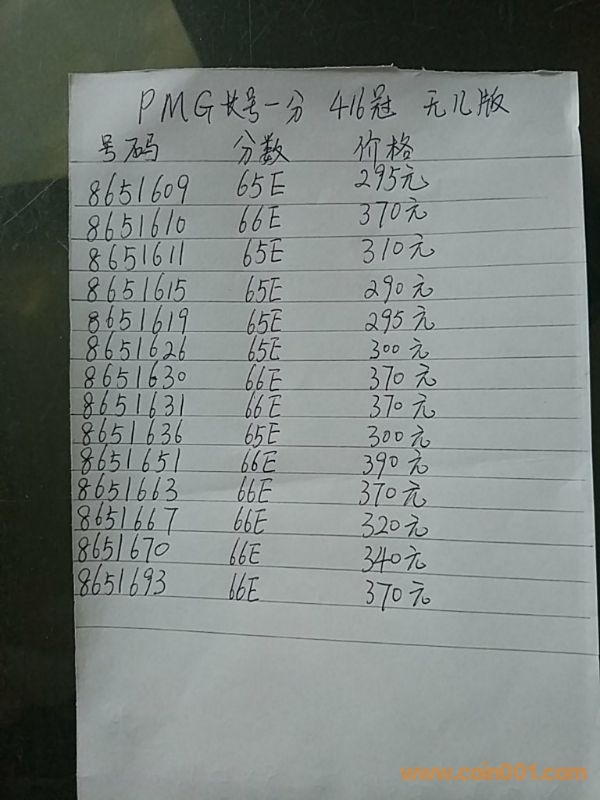 PMG长号一分 416冠 无儿版
号码 分数 价格
8651609 65E 295元
8651610 66E 370元
8651611 65E 310元
8651615 65E 290元
8651619 65E 295元
8651626 65E 300元
8651630 66E 370元
8651631 66E 370元
8651636 65E 300元
8651651 66E 390元
8651663 66E 370元
8651667 66E 320元
8651670 66E 340元
8651693 66E 370元
www.coin001.com